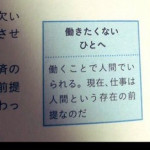 欠い
させ
済の
前提
わっ
働きたくない
ひとへ
働くことで人間でい
られる。現在、仕事は
人間という存在の前
提なのだ